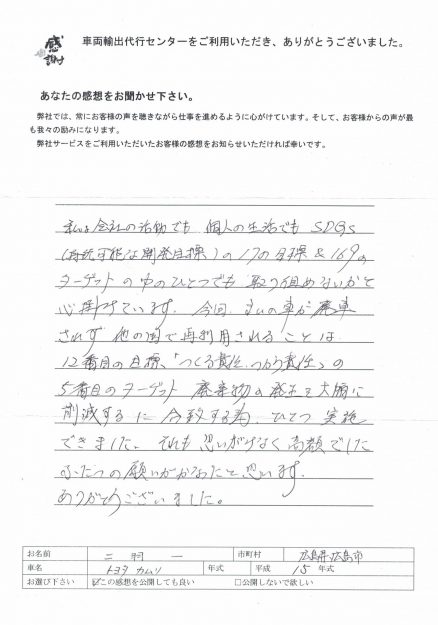 感謝
車両輸出代行センターをご利用いただき、ありがとうございました。
あなたの感想をお聞かせ下さい。
弊社では、常にお客様の声を聴きながら仕事を進めるように心がけています。そして、お客様からの声が最
も我々の励みになります。
弊社サービスをご利用いただいたお客様の感想をお知らせいただければ幸いです。
私は会社の活動でも 個人の生活でも SDGs
(持続可能な開発目標)の17の目標&169の
ターゲットの中のひとつでも 取り組めないかと
心掛けています。今回、私の車が廃車
されず 他の国で再利用されることは
12番目の目標、「つくる責任、つかう責任」の
5番目のターゲット 廃棄物の発生を大幅に
削減するに合致する為、ひとつ 実施
できました。それも思いがけなく高額でした
ふたつの願いがかなったと思います。
ありがとうございました。
お名前 二 一 市町村 広島県広島市
車名 トヨタ カムリ 年式 平成 15 年式
お選び下さい ☑この感想を公開しても良い □公開しないで欲しい